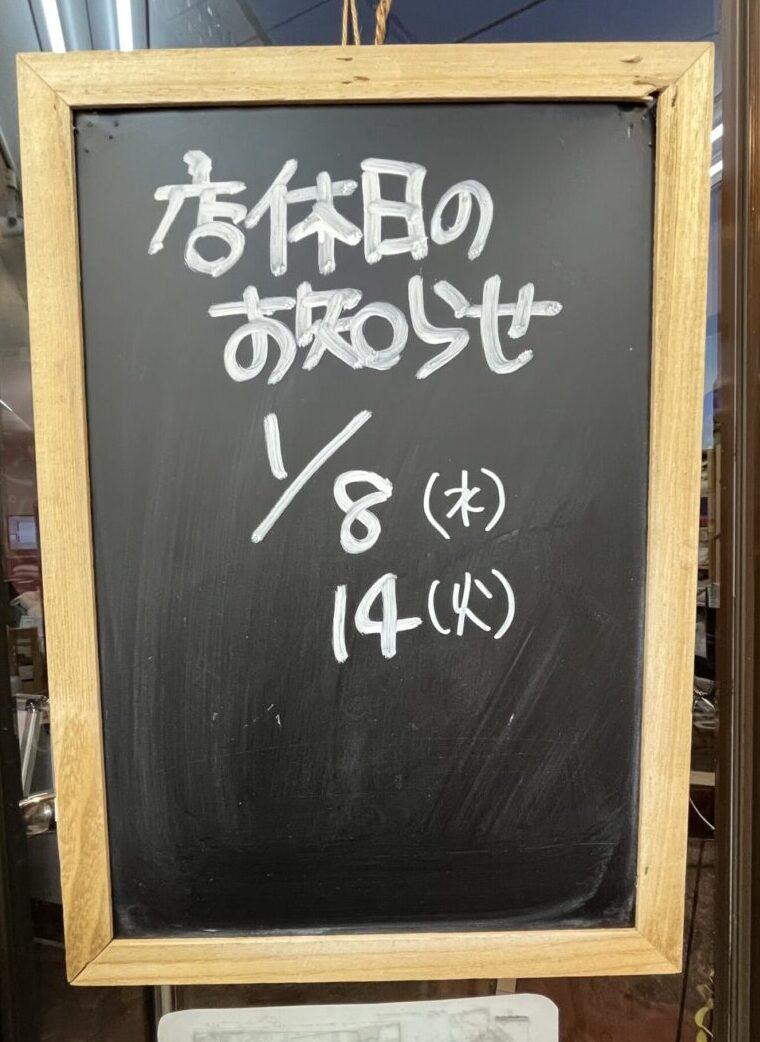 店休日の
お知らせ
1/8(水)
14(火)